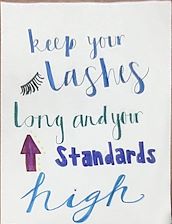 keep your
Lashes
Long and your
Standards
high